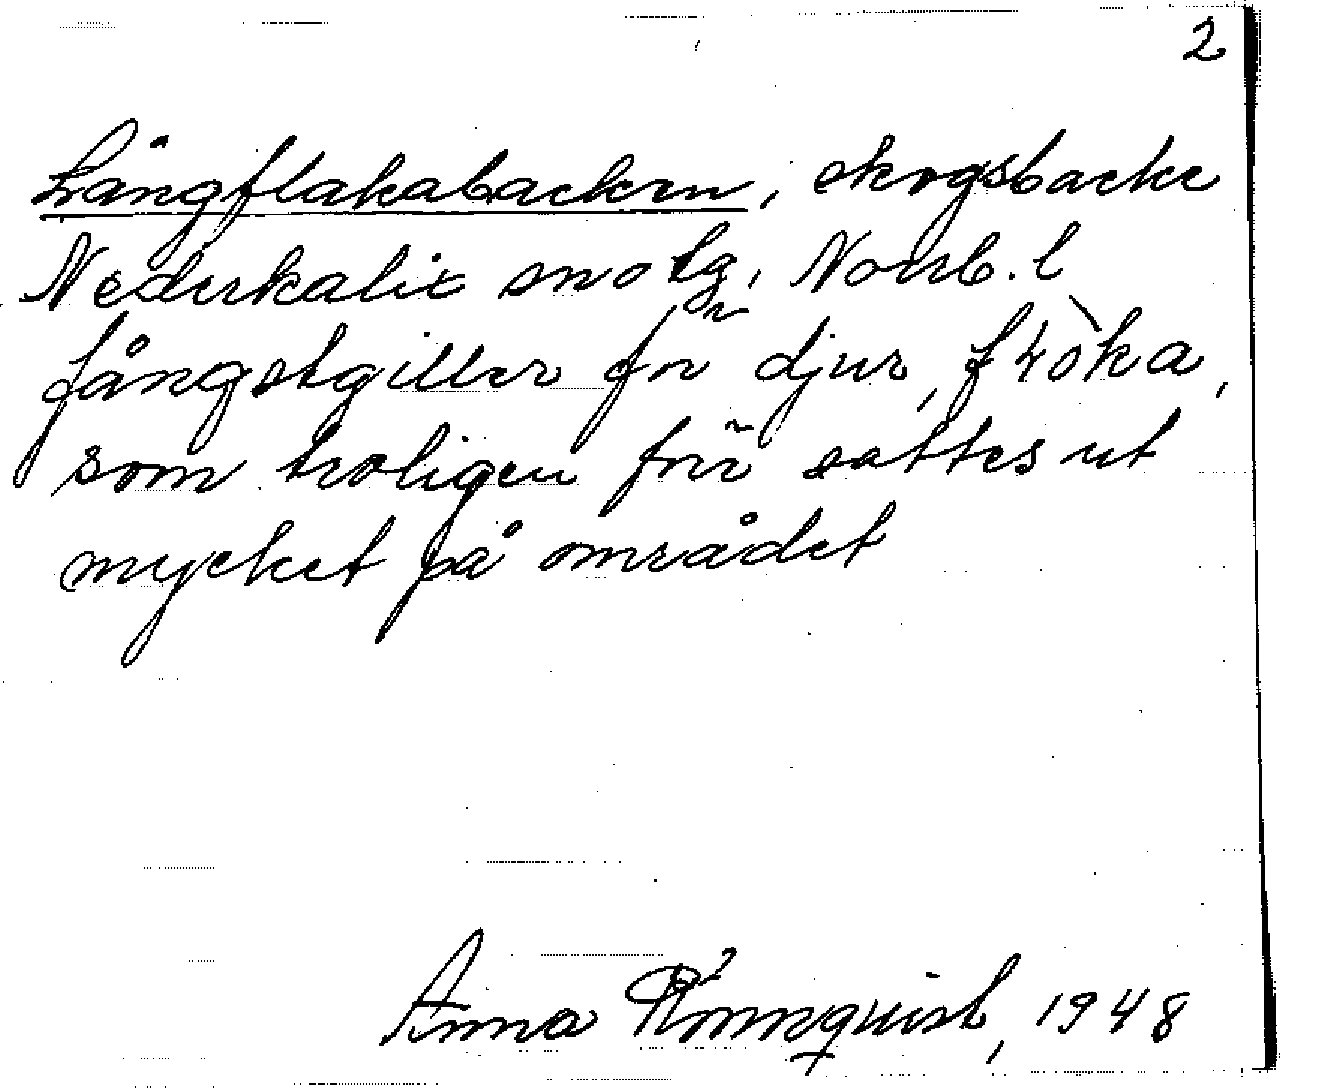 2
Långflakabacken, skogsbacke
Nederkalix snbtg, Norrb. l
fångstgiller för djur, fròka,
som troligen förr sattes ut
mycket på området
Anna Rönnquist, 1948